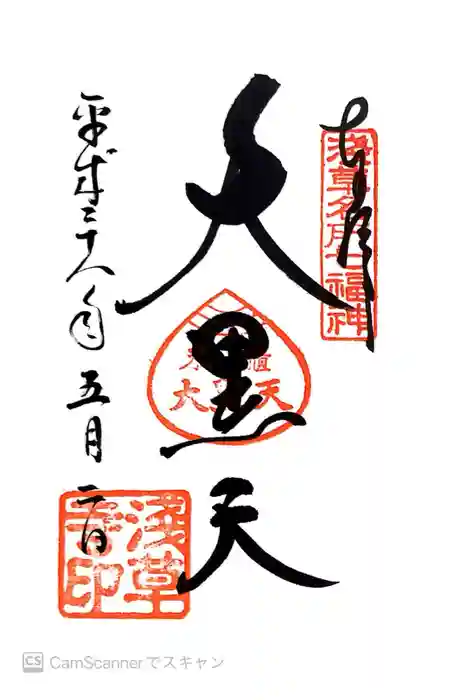 奉拝
浅草名所七福神
大黒天
大黒天
平成三十八年
五月二日
浅草寺印
CS CamScannerでスキャン